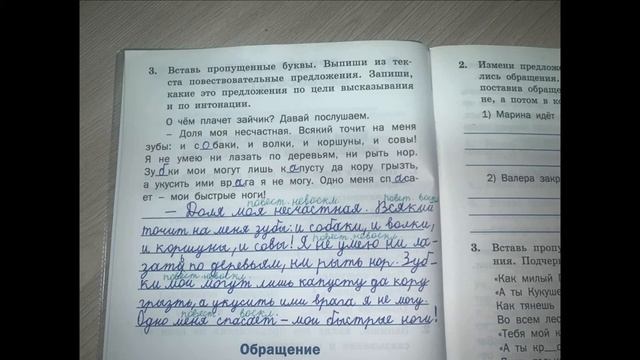 3. Вставь пропущенные буквы. Выпиши из тек-
ста повествовательные предложения. Запиши,
какие это предложения по цели высказывания
и по интонации.
О чём плачет зайчик? Давай послушаем.
– Доля моя несчастная. Всякий точит на меня
зубы: и собаки, и волки, и коршуны, и совы!
Я не умею ни лазать по деревьям, ни рыть нор.
Зубки мои могут лишь капусту да кору грызть,
а укусить ими врага я не могу. Одно меня спаса-
ет – мои быстрые ноги!
повест. невоскл. повест. воскл.
– Доля моя несчастная. Всякий
точит на меня зубы: и собаки, и волки,
и коршуны, и совы! Я не умею ни ла-
повест. невоскл.
зать по деревьям, ни рыть нор. Зуб-
повест. невоскл.
ки мои могут лишь капусту да кору
грызть, а укусить ими врага я не могу.
повест. воскл.
Одно меня спасает – мои быстрые ноги!
Обращение
2. Измени предложе
лись обращения.
поставив обраще
не, а потом в ко
1) Марина идёт
2) Валера закр
3. Вставь пропу
ния. Подчер
"Как милый П
"А ты Кукуше
Как тянешь
Во всем лес
"Тебя мой к
"А ты кр